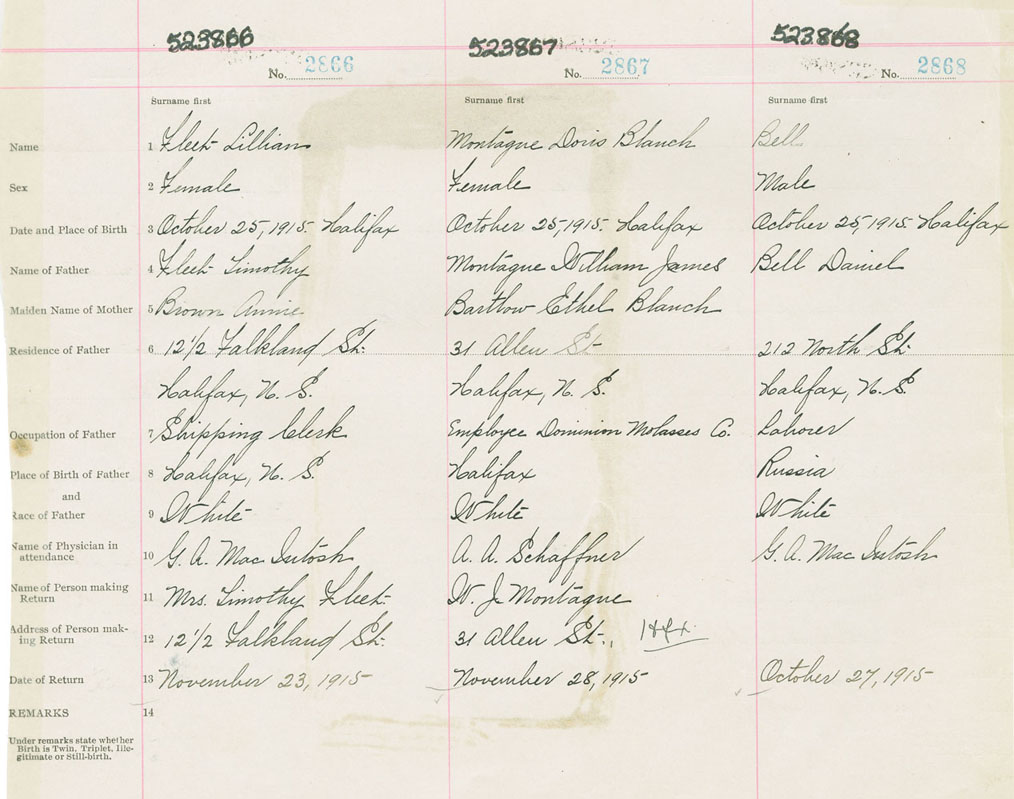 523866 523867 523868
No. 2866 No. 2867 No. 2868
Surname first Surname first Surname first
Name 1 Fleet Lillian Montague Doris Blanch Bell
Sex 2 Female Female Male
Date and Place of Birth 3 October 25, 1915. Halifax October 25, 1915. Halifax October 25, 1915. Halifax
Name of Father 4 Fleet Timothy Montague William James Bell Daniel
Maiden Name of Mother 5 Brown Annie Bartlow Ethel Blanch
Residence of Father 6 12 1/2 Falkland St. 31 Allen St. 212 North St.
Halifax, N. S. Halifax, N. S. Halifax, N. S.
Occupation of Father 7 Shipping Clerk Employee Dominion Molasses Co. Laborer
Place of Birth of Father 8 Halifax, N. S. Halifax Russia
and
Race of Father 9 White White White
Name of Physician in
attendance 10 G. A. Mac Intosh A. A. Schaffner G. A. Mac Intosh
Name of Person making
Return 11 Mrs. Timothy Fleet. W. J. Montague
Address of Person mak-
ing Return 12 12 1/2 Falkland St. 31 Allen St., Hfx.
Date of Return 13 November 23, 1915 November 28, 1915 October 27, 1915
REMARKS 14
Under remarks state whether
Birth is Twin, Triplet, Ille-
gitimate or Still-birth.